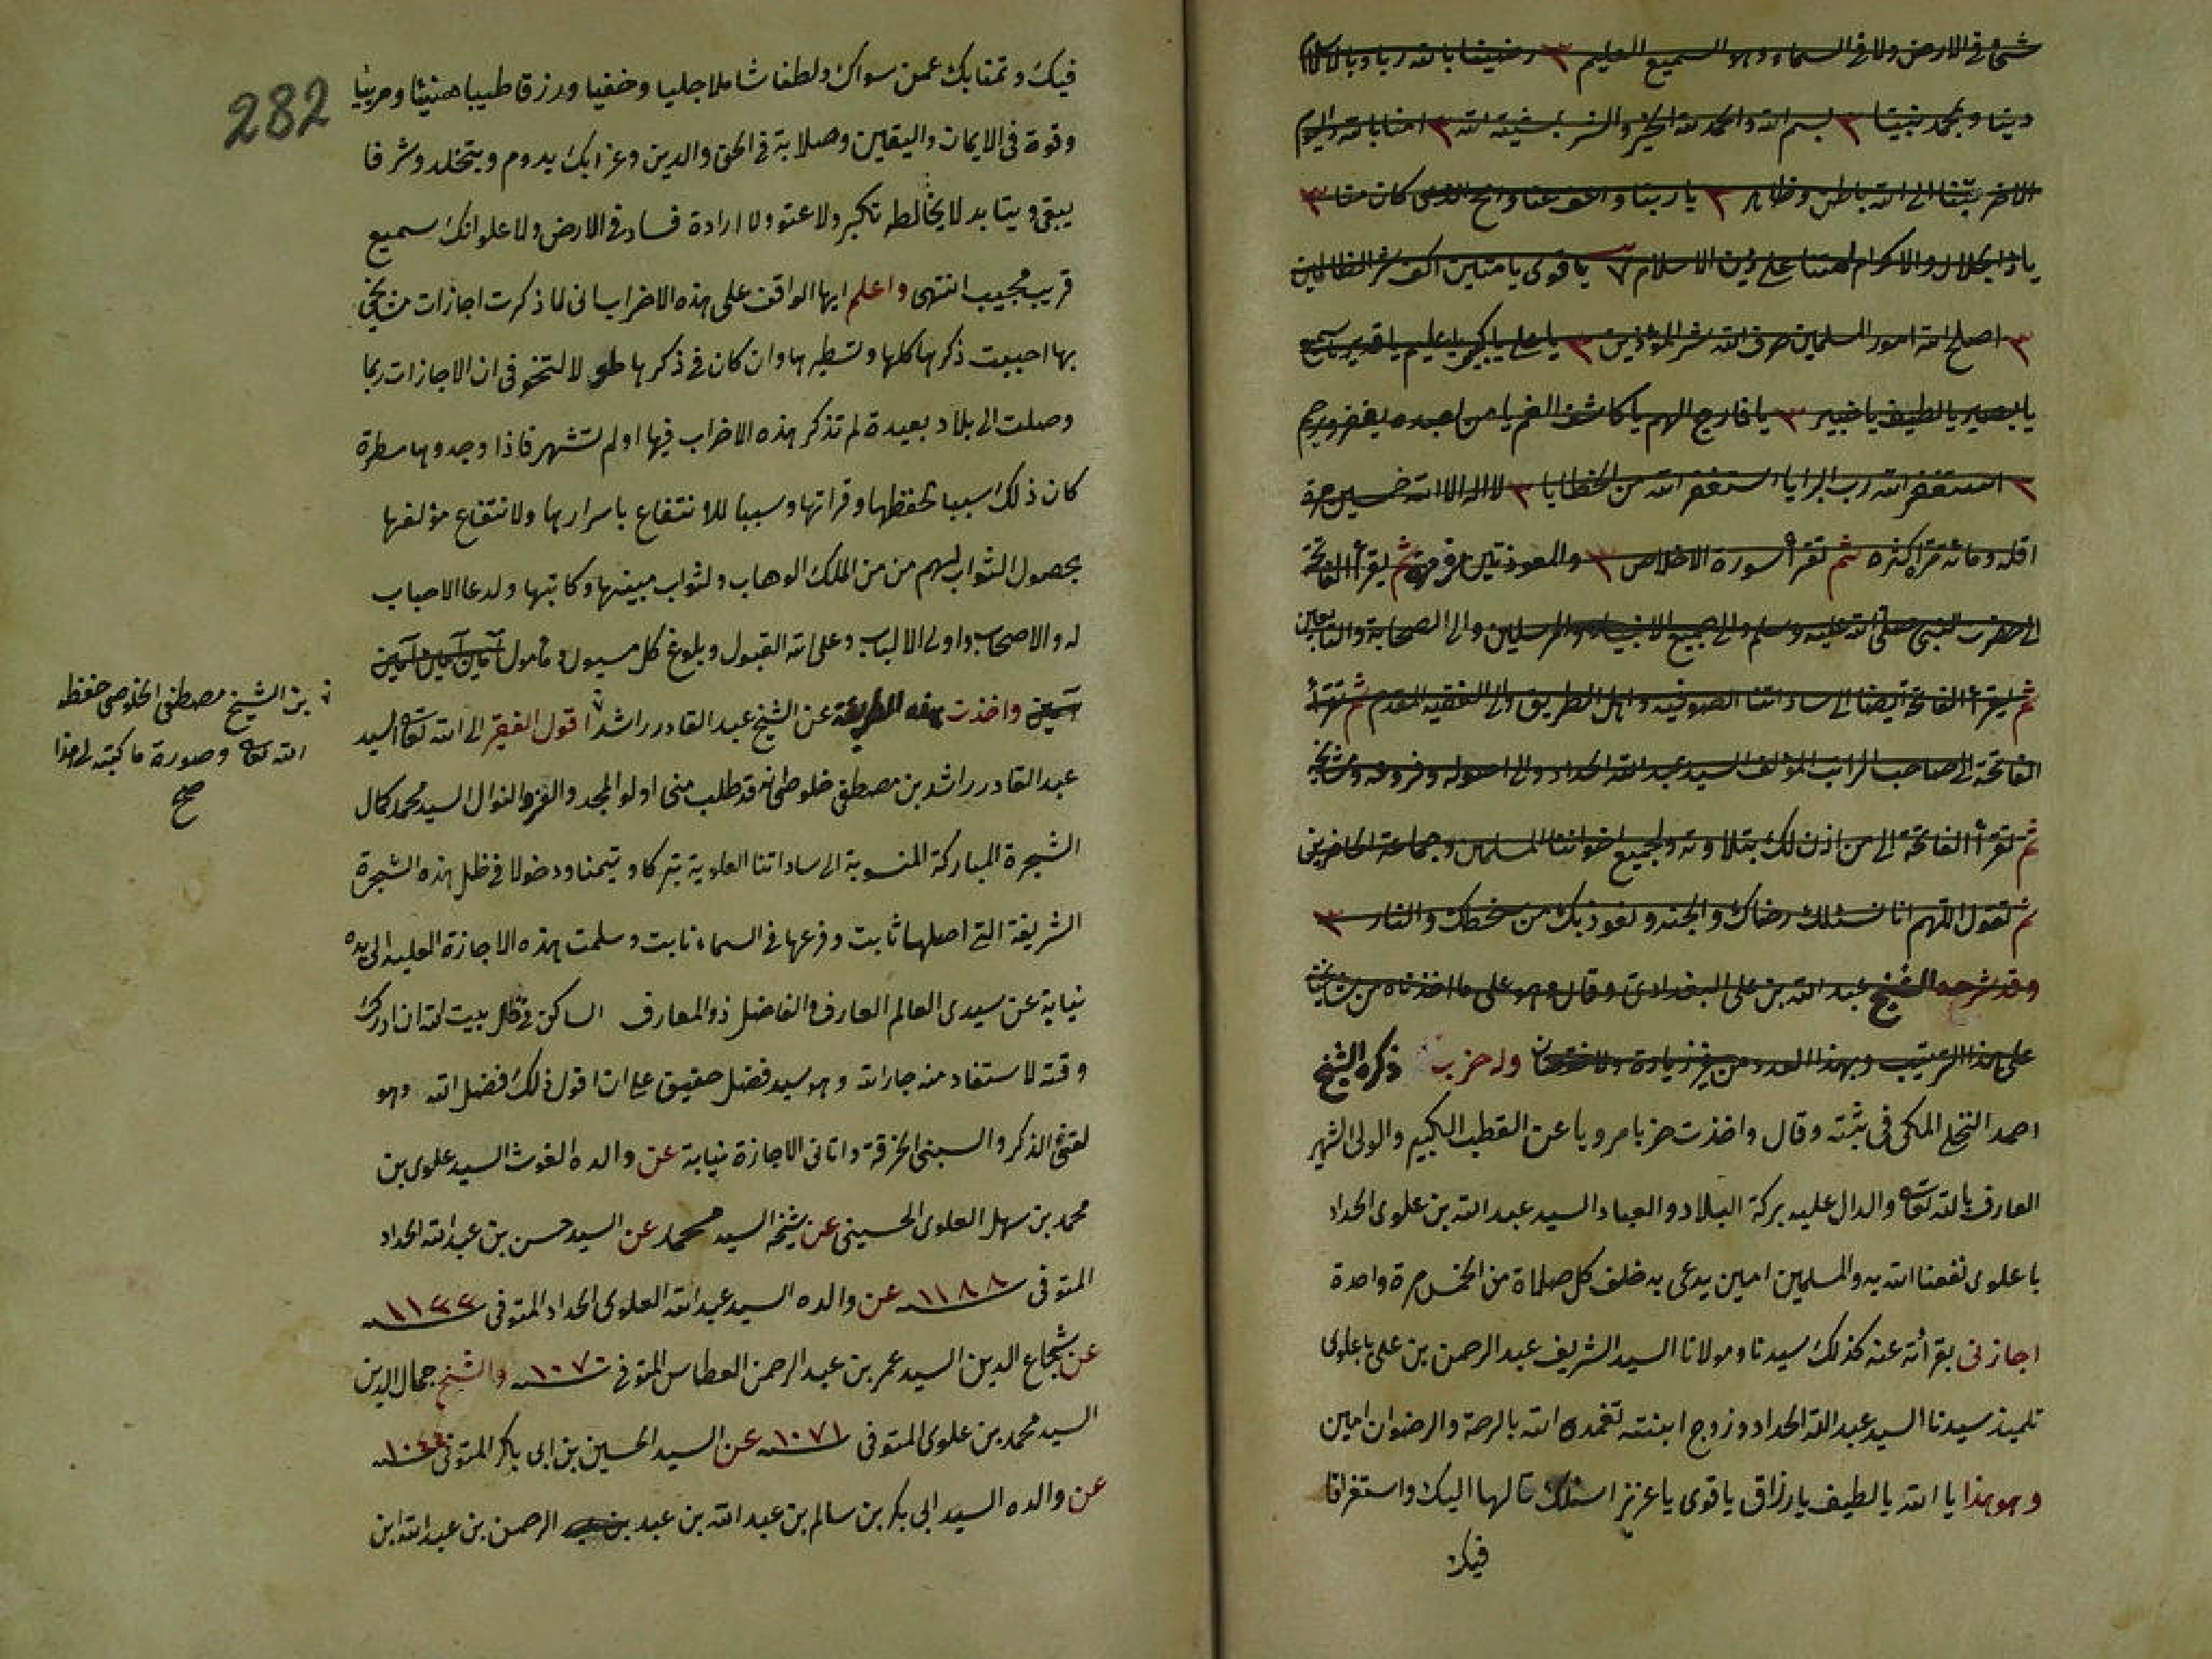 شئ في الارض ولا في السماء وهو السميع العليم ٣ رضينا بالله ربا وبالاسلام
دينا وبمحمد نبينا ٣ بسم الله والحمد لله والخير والشر بمشيئة الله ٣ امنا بالله واليوم
الاخر تبنا الى الله باطن وظاهر ٣ يا ربنا واعف عنا وامح الذى كان منا ٣
يا ذا الجلال والاكرام امتنا على دين الاسلام ٧ يا قوى يا متين اكف شر الظالمين
٣ اصلح الله امور المسلمين صرف الله شر المؤذين ٣ يا على يا كبير يا عليم يا قدير يا سميع
يا بصير يا لطيف يا خبير ٣ يا فارج الهم يا كاشف الغم يا من لعبده يغفر ويرحم
٣ استغفر الله رب البرايا استغفر الله من الخطايا ٣ لا اله الا الله خمسين مرة
اقله ومائة مرة اكثره ثم تقرأ سورة الاخلاص ٣ والمعوذتين مرة مرة ثم يقرأ الفاتحة
الى حضرت النبى صلى الله عليه وسلم والى جميع الانبياء والمرسلين والى الصحابة والتابعين
ثم يقرأ الفاتحة ايضا الى ساداتنا الصوفيه واهل الطريق والى الفقيه المقدم ثم تقرأ
الفاتحة الى صاحب الراتب المؤلف السيد عبد الله الحداد والى اصوله وفروعه ومشايخه
ثم تقرأ الفاتحة الى من اذن لك بتلاوته ولجميع اخواننا المسلمين وجماعة الحاضرين
ثم تقول اللهم انا نسئلك رضاك والجنه ونعوذ بك من سخطك والنار ٣
وقد شرحه الشيخ عبد الله بن على البغدادى وقال وهو على ما اخذناه من مشايخنا
على هذا الترتيب وبهذا العدد من غير زيادة ولا نقصان وله حزب ذكره الشيخ
احمد النخلى المكى فى ثبته وقال واخذت حزبا مرويا عن القطب الكبير والولى الشهير
العارف بالله تعالى والدال عليه بركة البلاد والعباد السيد عبد الله بن علوى الحداد
باعلوى نفعنا الله به والمسلمين امين يدعى به خلف كل صلاة من الخمس مرة واحدة
اجازنى بقرأته عنه كذلك سيدنا ومولانا السيد الشريف عبد الرحمن بن على باعلوى
تلميذ سيدنا السيد عبد الله الحداد وزوج ابنته تغمده الله بالرحمة والرضوان امين
وهو هذا يا الله يا لطيف يا رزاق يا قوى يا عزيز اسئلك تألها اليك واستغراقا
فيك
282
فيك وتمنا بك عمن سواك ولطفا شاملا جليا وخفيا ورزقا طيبا هنيئا ومريئا
وقوة فى الايمان واليقين وصلابة فى الحق والدين وعزا بك يدوم ويتخلد وشرفا
يبقى ويتابد لا يخالطه تكبر ولا عتو ولا ارادة فساد فى الارض ولا علو انك سميع
قريب مجيب انتهى واعلم ايها الواقف على هذه الاحزاب انى لما ذكرت اجازات مشايخى
بها احببت ذكرها كلها وتسطيرها وان كان فى ذكرها طول لا لتخوفى ان الاجازات ربما
وصلت الى بلاد بعيدة لم تذكر هذه الاحزاب فيها او لم تشتهر فاذا وجدوها مسطرة
كان ذلك سببا لحفظها وقراتها وسببا للانتفاع باسرارها ولانتفاع مؤلفها
بحصول الثواب لهم من من الملك الوهاب ولثواب مبيضها وكاتبها ولدعا الاحباب
له والاصحاب واولى الالباب وعلى الله القبول وبلوغ كل مسيول ومأمول آمين آمين آمين
آمين واخذت هذه الطريقة عن الشيخ عبد القادر راشد اقول الفقير الى الله تعالى السيد
عبد القادر راشد بن مصطفى خلوصى انه قد طلب منى اولو المجد والعز والنوال السيد محمد كمال
الشجرة المباركة المنسوبة الى ساداتنا العلوية تبركا وتيمنا ودخولا فى ظل هذه الشجرة
الشريفة التى اصلها ثابت وفرعها فى السماء نابت وسلمت هذه الاجازة العليه الى يده
نيابة عن سيدى العالم العارف والفاضل ذو المعارف الساكن فى ظل بيت الله ان ادرك
وقته لاستفاد منه جار الله وهو سيد فضل حقيق على ان اقول ذلك فضل الله وهو
لقننى الذكر والبسنى الخرقة واتانى الاجازة نيابة عن والده الغوث السيد علوى بن
محمد بن سهل العلوى الحسينى عن شيخه السيد محمد عن السيد حسن بن عبد الله الحداد
المتوفى سنة ١١٨٨ عن والده السيد عبد الله العلوى الحداد المتوفى سنة ١١٢٢
عن شجاع الدين السيد عمر بن عبد الرحمن العطاس المتوفى سنة ١٠٧٠ والشيخ جمال الدين
السيد محمد بن علوى المتوفى سنة ١٠٧١ عن السيد الحسين بن ابى باكر المتوفى سنة ١٠٤٤
عن والده السيد ابى بكر بن سالم بن عبد الله بن عبد الرحمن بن عبد الله ابن
بن الشيخ مصطفى الخلوصى حفظه
الله تعالى وصورة ما كتبه لى هذا
صح